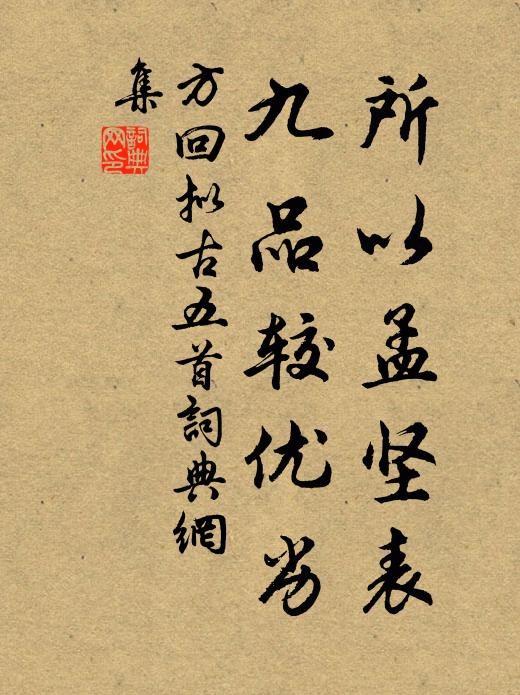 所以孟坚表
九品较优劣
方回拟古五首詞典網
集
詞典网印